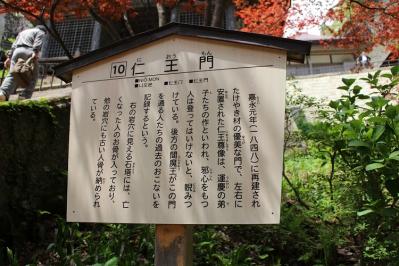 10 仁王門
におう もん
■NIO-MON
嘉永元年(一八四八)に再建され
たけやき材の優美な門で、左右に
安置された仁王尊像は、運慶の弟
子たちの作といわれ、邪心をもつ
人は登ってはいけないと、睨みつ
けている。後方の閻魔王がこの門
を通る人たちの過去のおこないを
記録するという。
石の岩穴に見える石塔には、亡
くなった人のお骨が入っており、
他の岩穴にも古い人骨が納められ
ている。